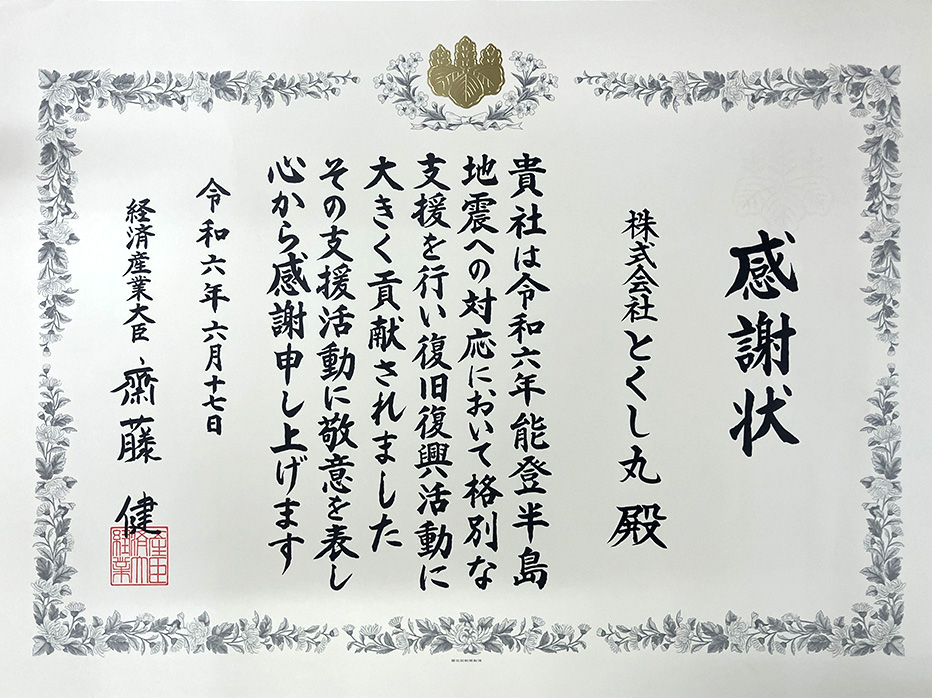 感謝状
株式会社とくし丸 殿
貴社は令和六年能登半島
地震への対応において格別な
支援を行い復旧復興活動に
大きく貢献されました
その支援活動に敬意を表し
心から感謝申し上げます
令和六年六月十七日
経済産業大臣 齋藤 健